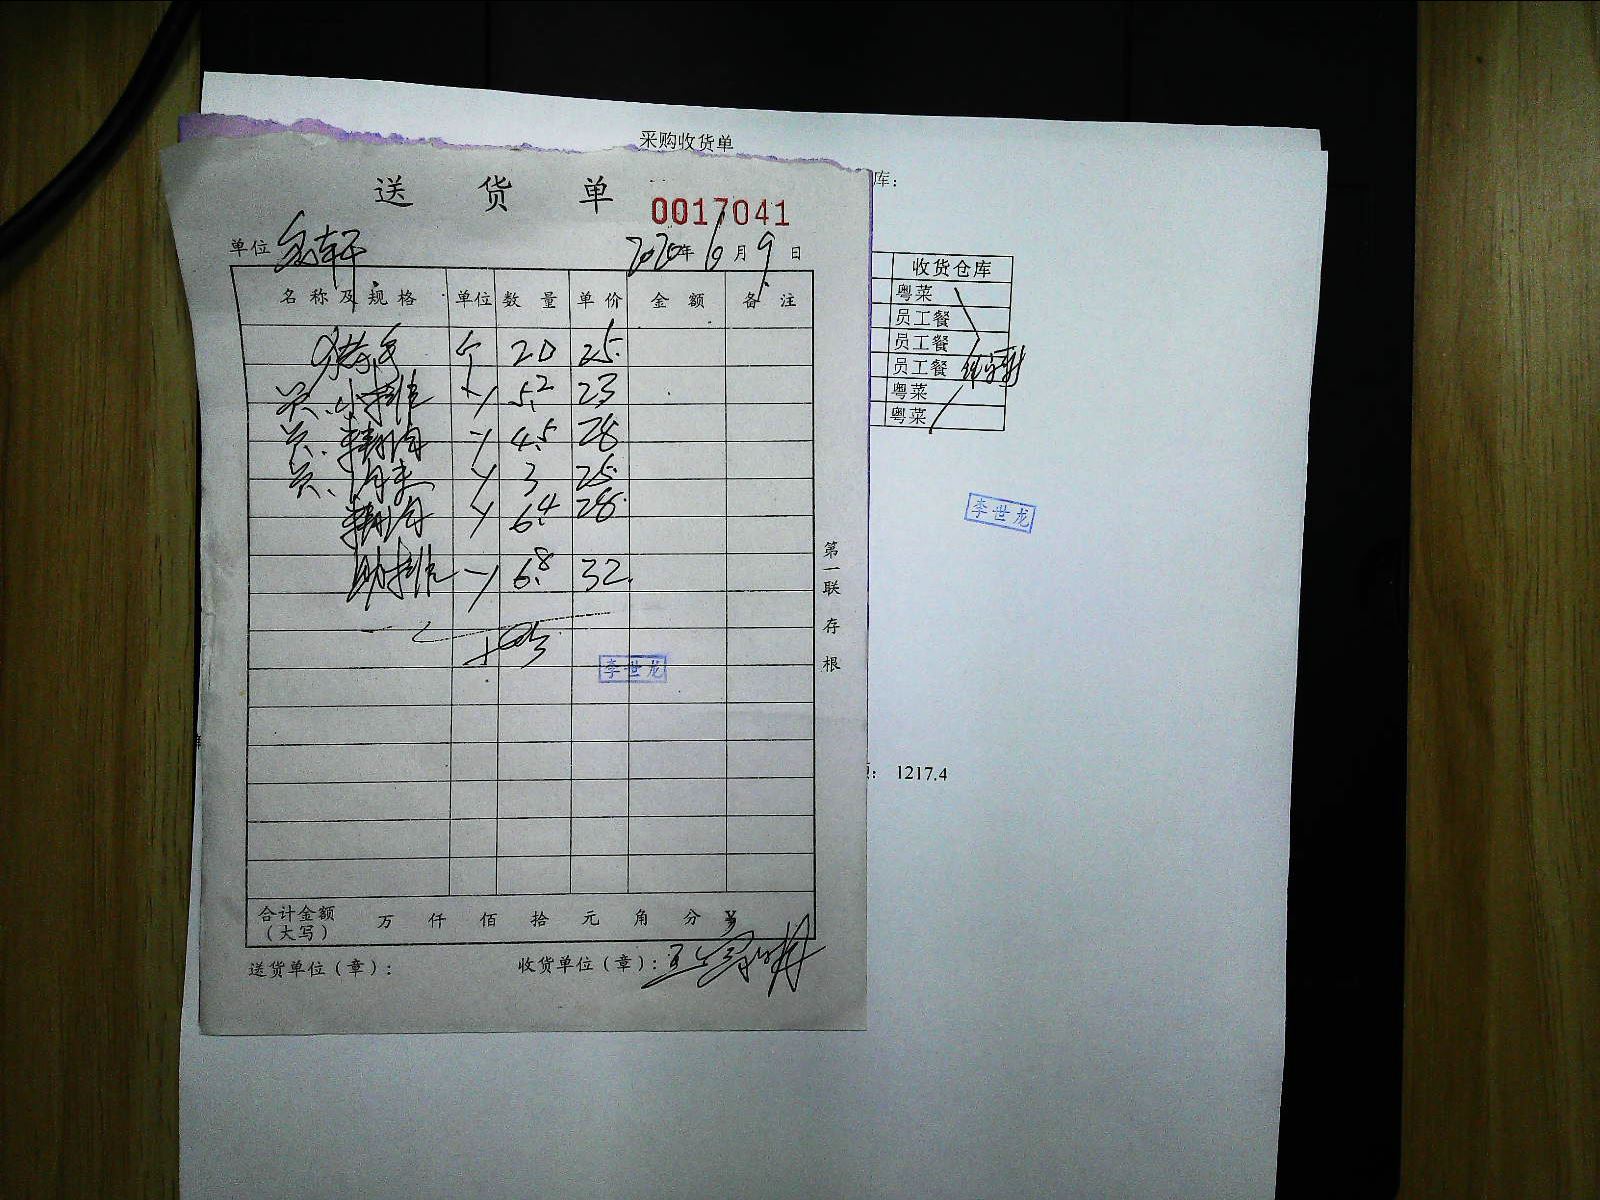 采购收货单
库：
送货单
0017041
单位
2020年6月9日
名称及规格 单位 数量 单价 金额 备注
收货仓库
粤菜
员工餐
员工餐
员工餐
粤菜
粤菜
个 20 25
员.小排 5.2 23
员.精肉 4.5 28
员. 3 25
精肉 6.4 28
肋排 6.8 32
李世龙
李世龙
第一联存根
：1217.4
合计金额（大写） 万 仟 佰 拾 元 角 分 ¥
送货单位（章）：
收货单位（章）：